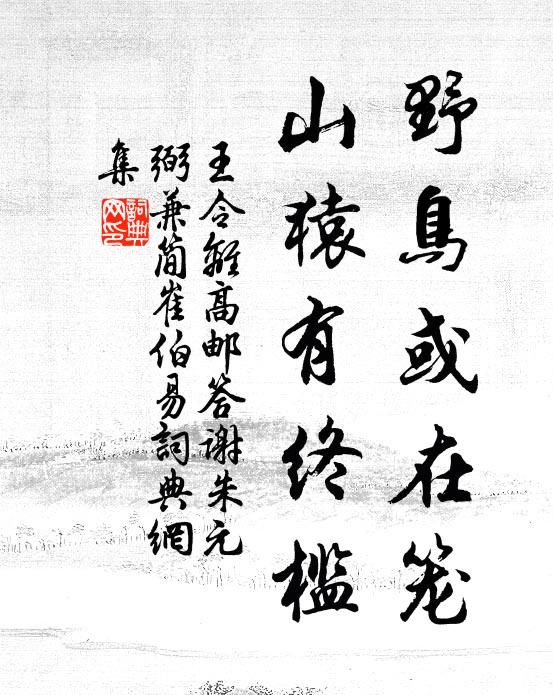 野鳥或在笼
山猿有終檻
王令離高邮答谢朱元
弼兼简崔伯易詞典網
集
詞典
网印